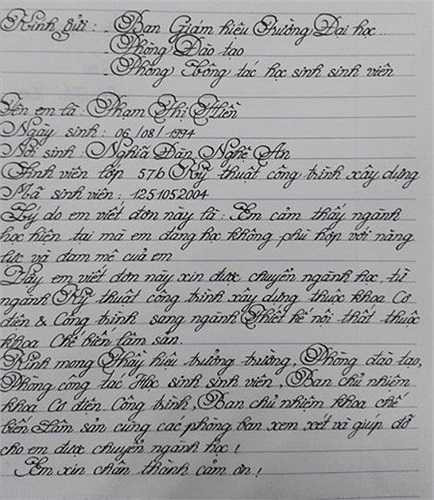 Kính gửi : - Ban Giám hiệu Trường Đại học..
- Phòng Đào tạo
- Phòng Công tác học sinh sinh viên
Tên em là : Phạm Thị Hiền
Ngày sinh : 06/08/1994
Nơi sinh : Nghĩa Đàn, Nghệ An
Sinh viên lớp 57b Kỹ thuật công trình xây dựng
Mã sinh viên : 1251052004
Lý do em viết đơn này là : Em cảm thấy ngành
học hiện tại mà em đang học không phù hợp với năng
lực và đam mê của em
Vậy em viết đơn này xin được chuyển ngành học, từ
ngành Kỹ thuật công trình xây dựng thuộc khoa Cơ
điện & Công trình sang ngành Thiết kế nội thất thuộc
khoa Chế biến lâm sản.
Kính mong Thầy hiệu trưởng trường, Phòng đào tạo,
Phòng công tác Học sinh sinh viên, Ban chủ nhiệm
khoa Cơ điện Công trình, Ban chủ nhiệm khoa chế
biến Lâm sản cùng các phòng ban xem xét và giúp đỡ
cho em được chuyển ngành học !
Em xin chân thành cảm ơn !